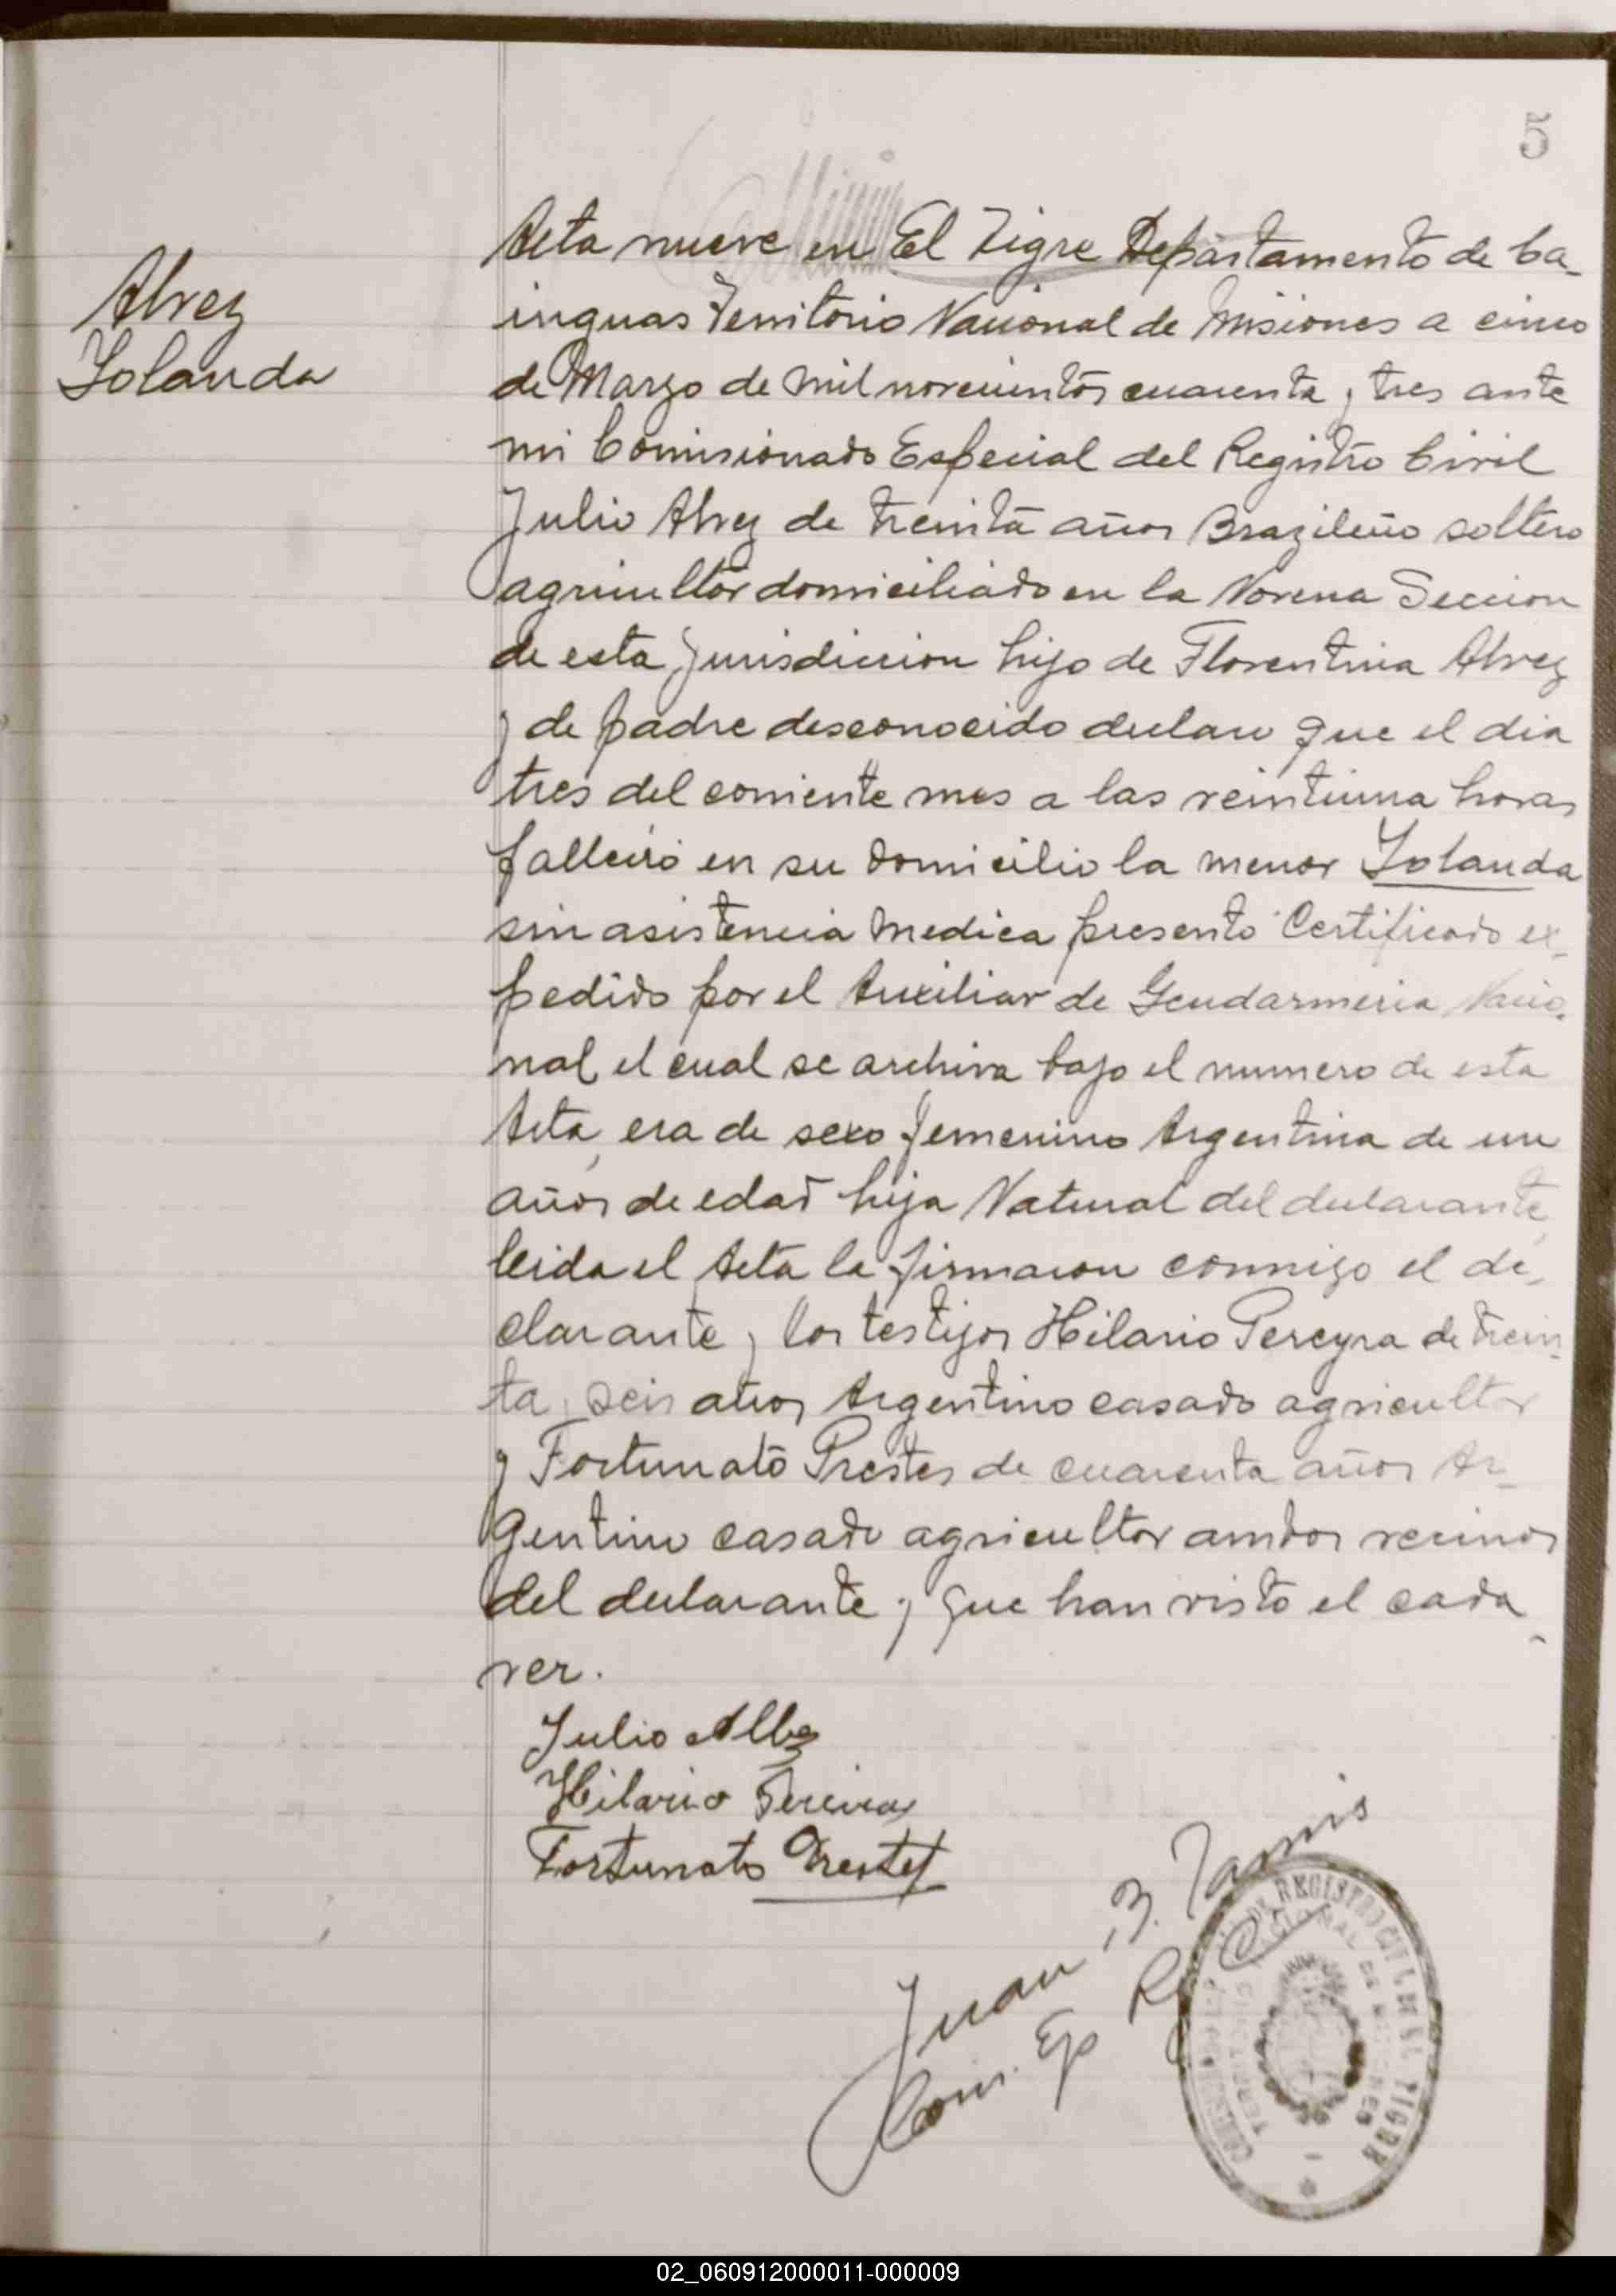 5
Alvez
Yolanda
Acta nueve en El Tigre Departamento de Ca-
inguas Territorio Nacional de Misiones a cinco
de Marzo de mil novecientos cuarenta y tres ante
mi Comisionado Especial del Registro Civil
Julio Alvez de treinta años Brazileño soltero
agricultor domiciliado en la Novena Seccion
de esta jurisdiccion hijo de Florentina Alvez
y de padre desconocido declaro que el dia
tres del corriente mes a las veintiuna horas
fallecio en su domicilio la menor Yolanda
sin asistencia medica presento Certificado ex-
pedido por el Auxiliar de Gendarmeria Nacio-
nal el cual se archiva bajo el numero de esta
Acta, era de sexo femenino Argentina de un
años de edad hija Natural del declarante
leida el Acta la firmaron conmigo el de-
clarante y los testigos Hilario Pereyra de trein-
ta y seis años Argentino casado agricultor
y Fortunato Prestes de cuarenta años Ar-
gentino casado agricultor ambos vecinos
del declarante y que han visto el cada-
ver.
Julio Albez
Hilario Pereira
Fortunato Prestes
Juan B.
Com. Esp R. C.
REGISTRO CIVIL EL TIGRE
NACIONAL DE MISIONES
02_060912000011-000009